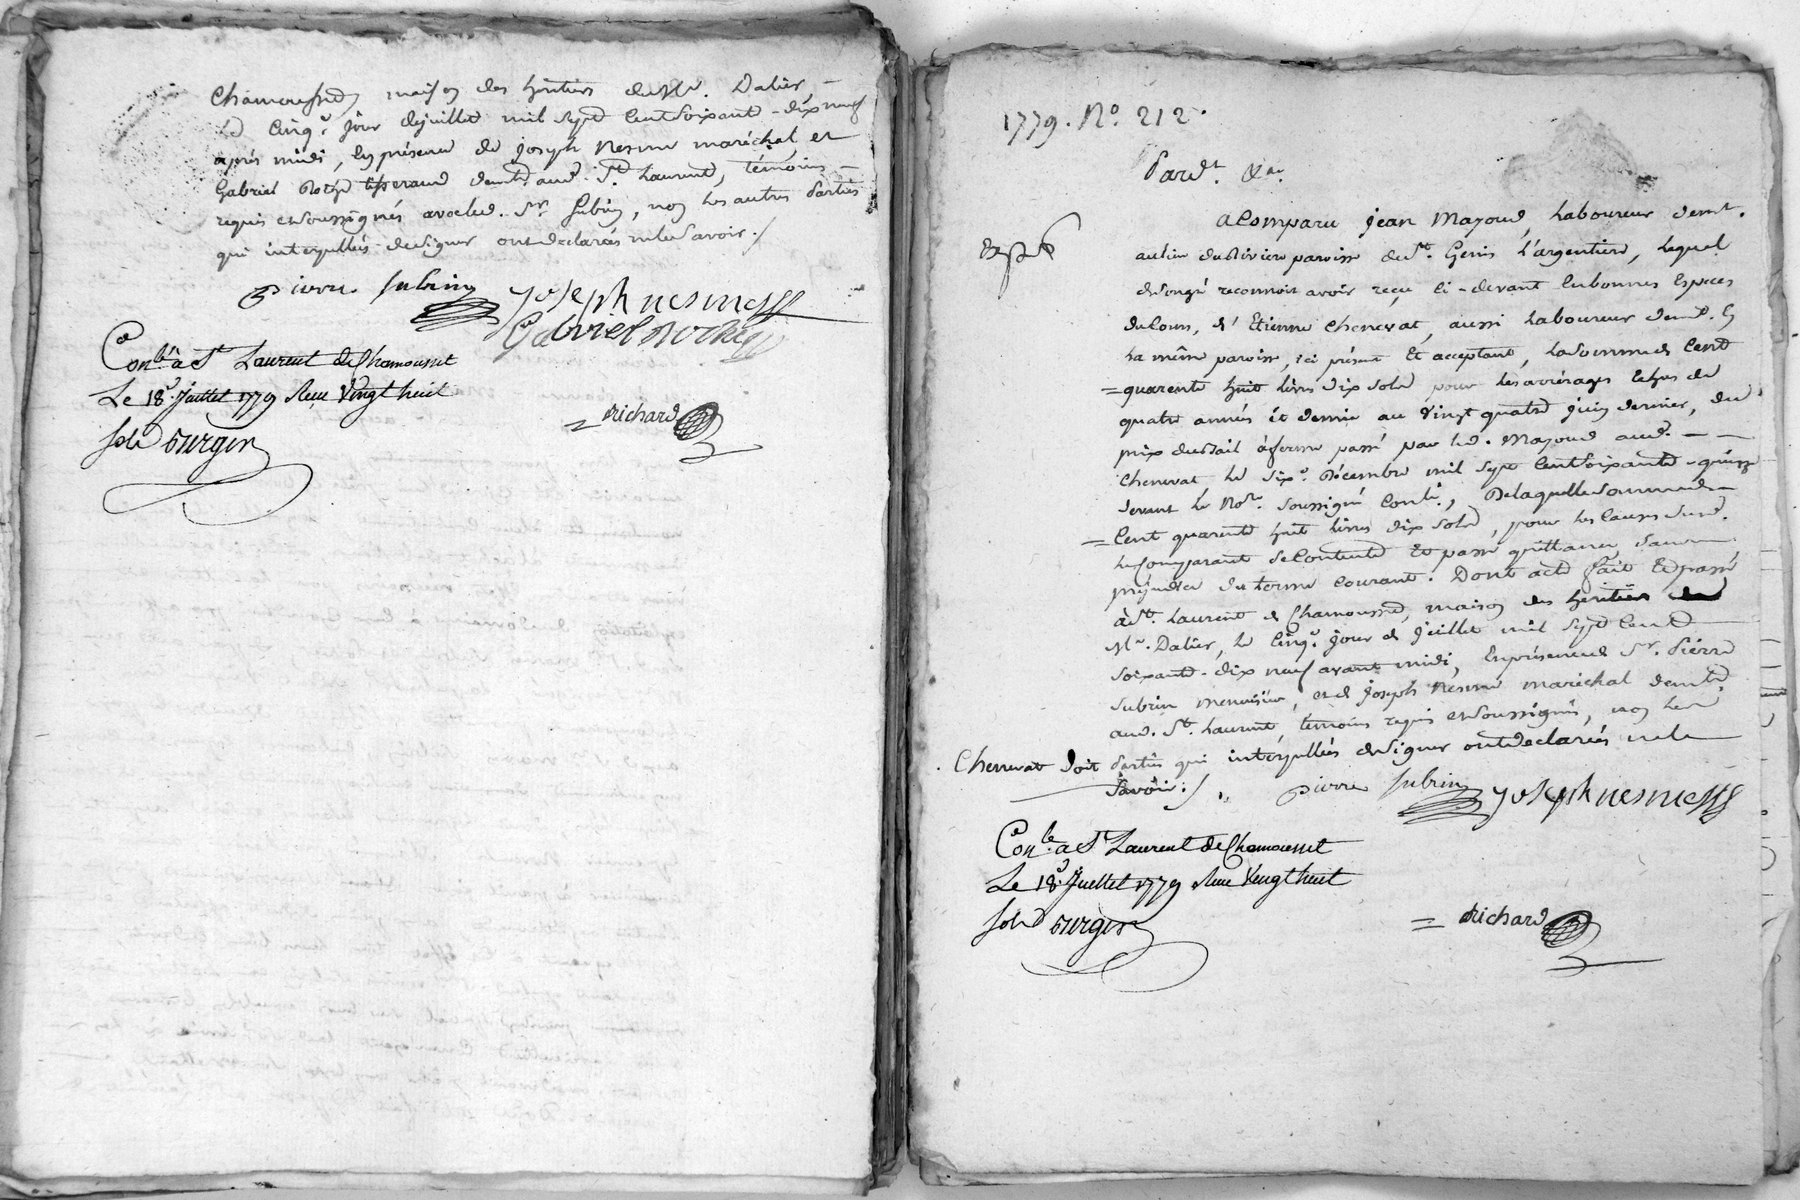 Chamousset, maison des héritiers de Me. Dalier
Le cinqe. jour dejuillet mil sept centsoixante-dixneuf
après midi, en présence de joseph Nesme maréchal et
Gabriel tisserand demt. aud. St. Laurent, témoins
requis etsoussignés avecled. Sr. Subrin, non les autres parties
qui interpellées designer ontdeclarées nelesavoir ./
pierre subrin joseph nesme
Gabriel
Conlé. à St Laurent de Chamousset
Le 18e. Juillet 1779 Reçu Vingt huit
sols
richard
1779. No. 212.
Pardt. &a.
Acomparu jean Mazoud, Laboureur demt.
au lieu duRivier paroisse de St. Genis L'argentiere, lequel
degré reconnoit avoir reçu ci-devant en bonnes Especes
deCours, d'Etienne Chenevat, aussi Laboureur demt. en
La même paroisse, ici présent Et acceptant, Lasomme de Cent
= quarente huit livres dix sols pour les arrérages échus de
quatre années et demie au vingt quatre juin dernier, du
prix dubail àferme passé par led. Mazoud aud.
Chenevat le six. Décembre mil sept centsoixante-quinze
devant le Nore. soussigné Conlé., Delaquellesommede
= Cent quarente huit livres dix sols, pour les causes susd.
lecomparant secontente Et passe quittance sans
préjudice du terme courant. Dont acte fait Etpassé
à St. Laurent de Chamousset, maison des héritiers de
Me. Dalier, le cinqe. jour de juillet mil sept cent
soixante-dix neuf avant midi, Enprésence de Sr. Pierre
Subrin menuisier, et de joseph Nesme maréchal demt.
aud. St. Laurent, témoins requis etsoussignés, non les
Chenevat doit parties qui interpellées designer ontdeclarées nele
savoir ./ pierre subrin joseph nesme
Conlé. à St Laurent de Chamousset
Le 18e. Juillet 1779 Reçu Vingt huit
sols
richard